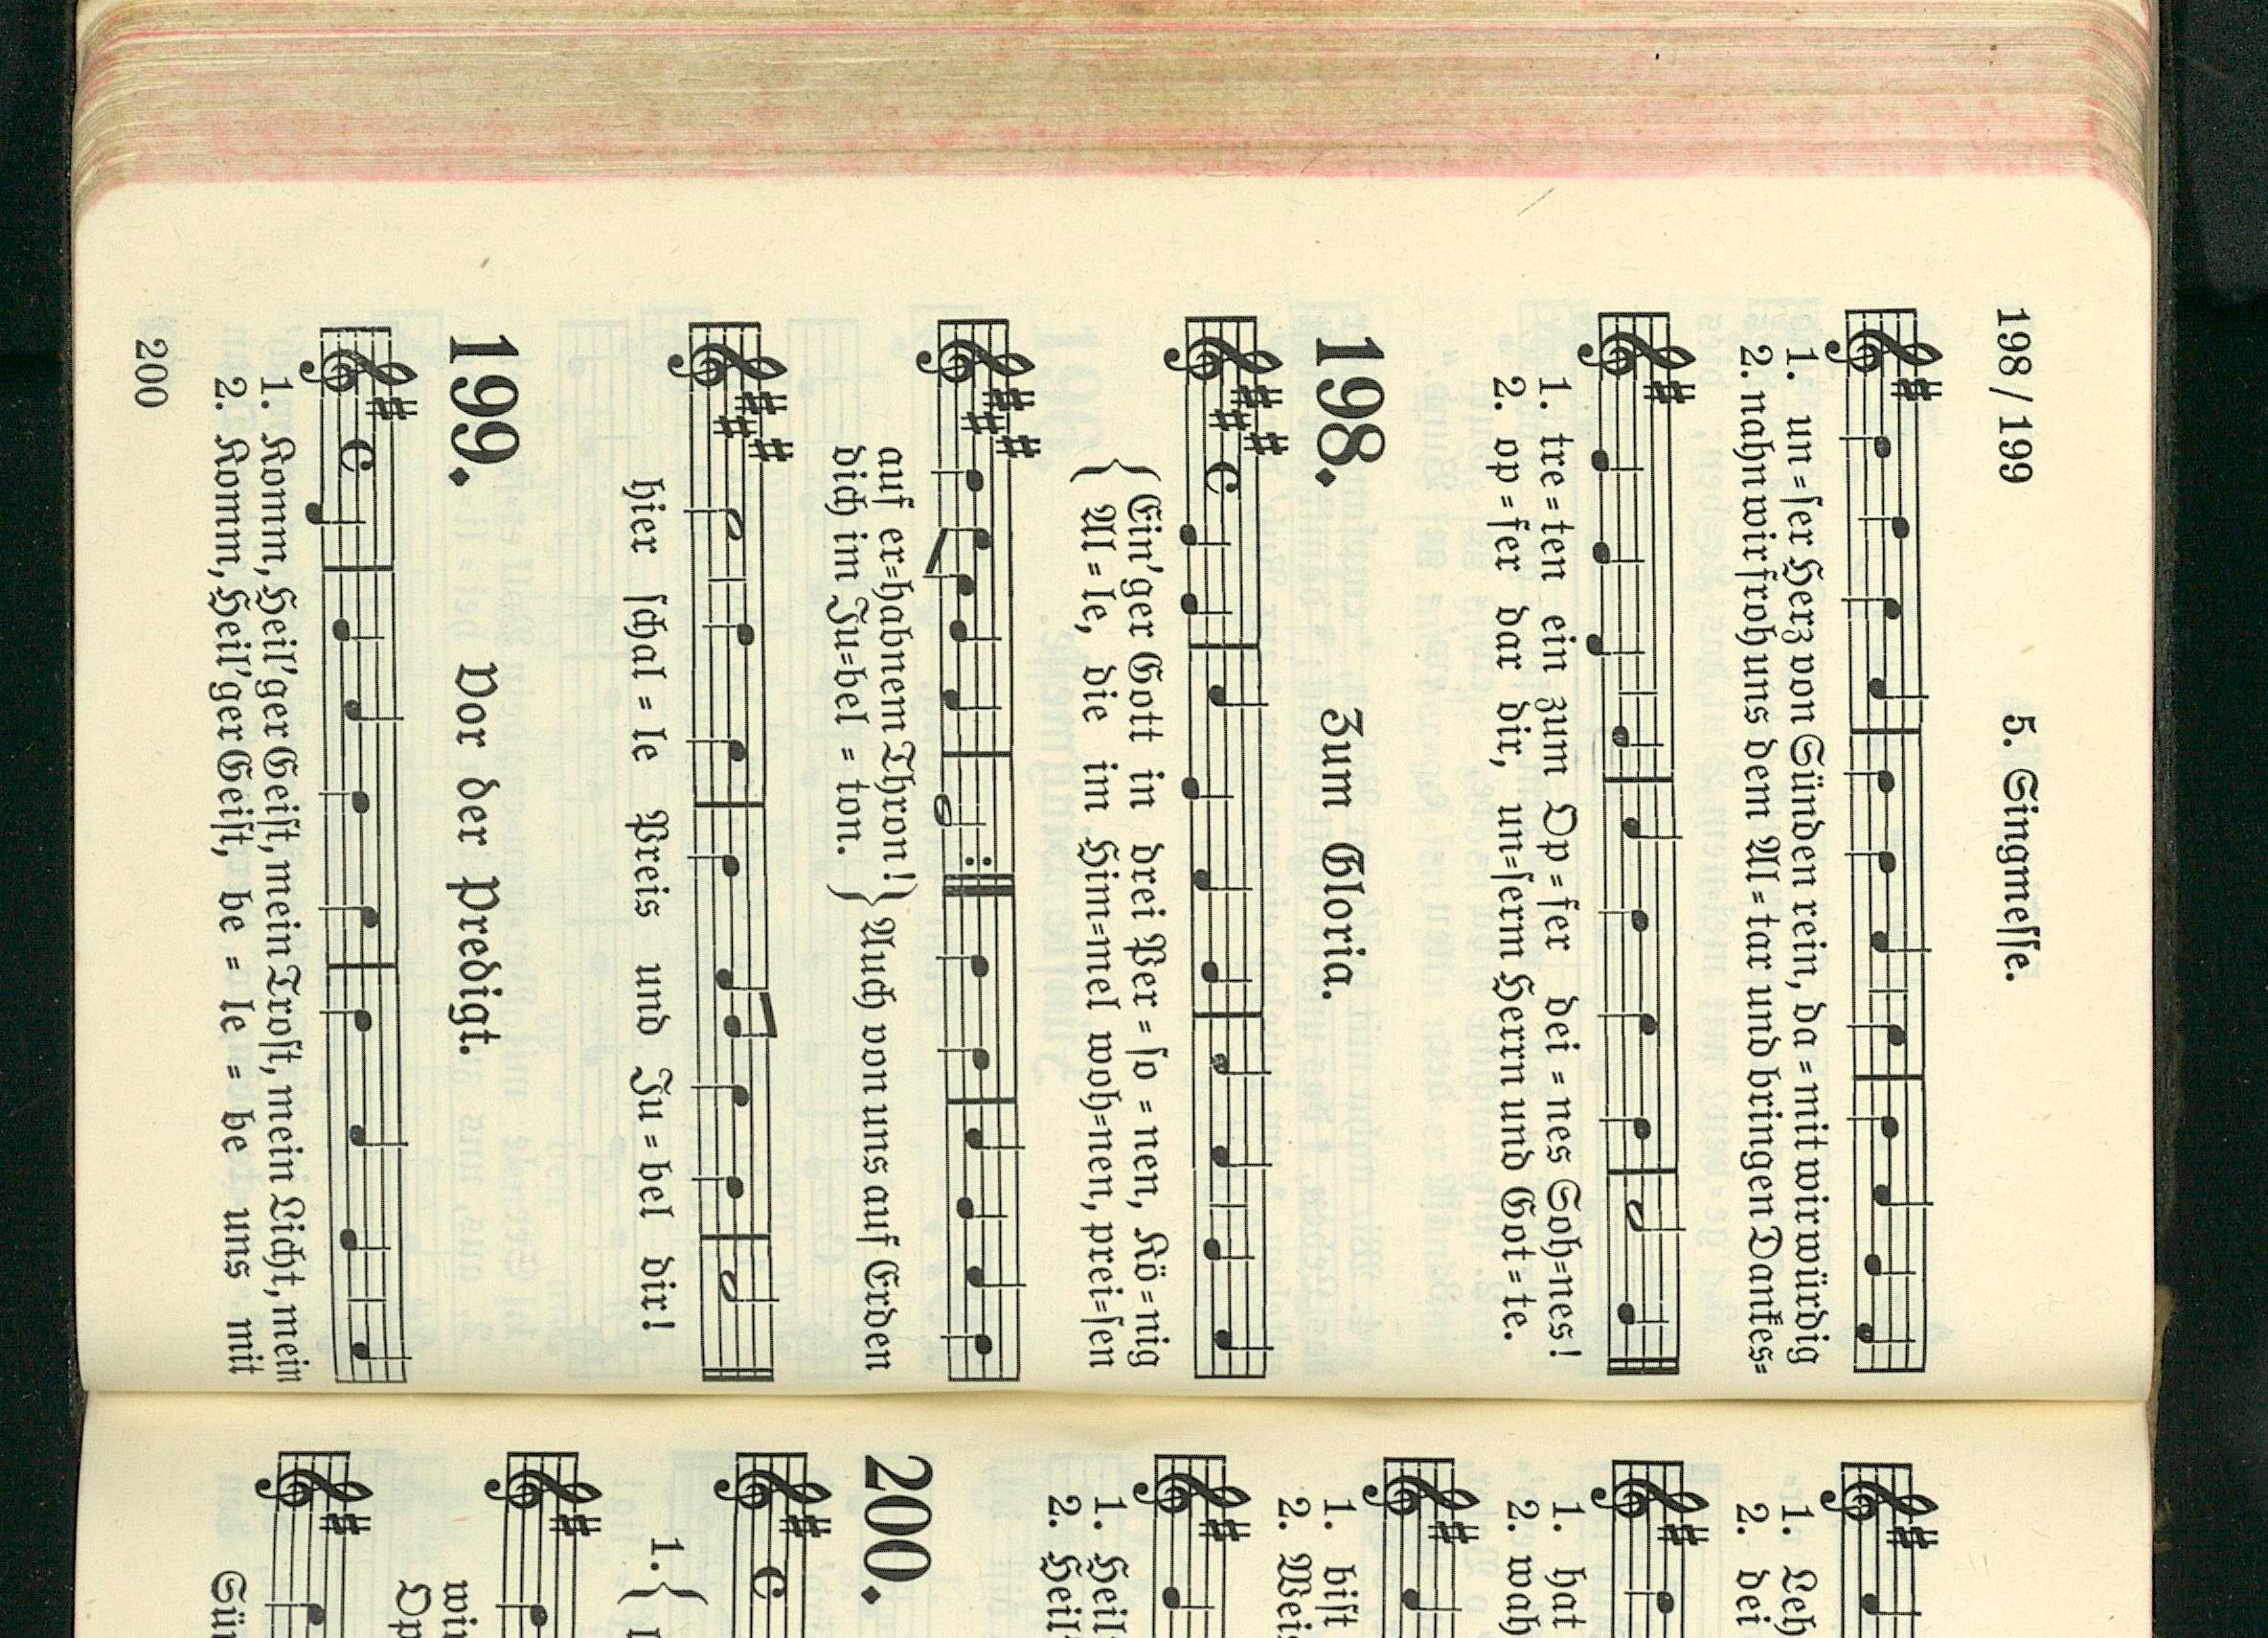 198/199 5. Singmesse.
1. un=ser Herz von Sünden rein, da=mit wir würdig
2. nahn wir froh uns dem Al=tar und bringen Dankes=
1. tre=ten ein zum Op=fer dei=nes Soh=nes!
2. op=fer dar dir, un=serm Herrn und Got=te.
198. Zum Gloria.
Ein'ger Gott in drei Per=so=nen, Kö=nig
Al=le, die im Him=mel woh=nen, prei=sen
auf er=habnem Thron! Auch von uns auf Erden
dich im Ju=bel=ton.
hier schal=le Preis und Ju=bel dir!
199. Vor der Predigt.
1. Komm, Heil'ger Geist, mein Trost, mein Licht, mein
2. Komm, Heil'ger Geist, be=le=be uns mit
200
1. Leh
2. dei
1. hat
2. wah
1. bist
2. Weis
1. Heil
2. Heil
200.
1.
wir
Op
Sün